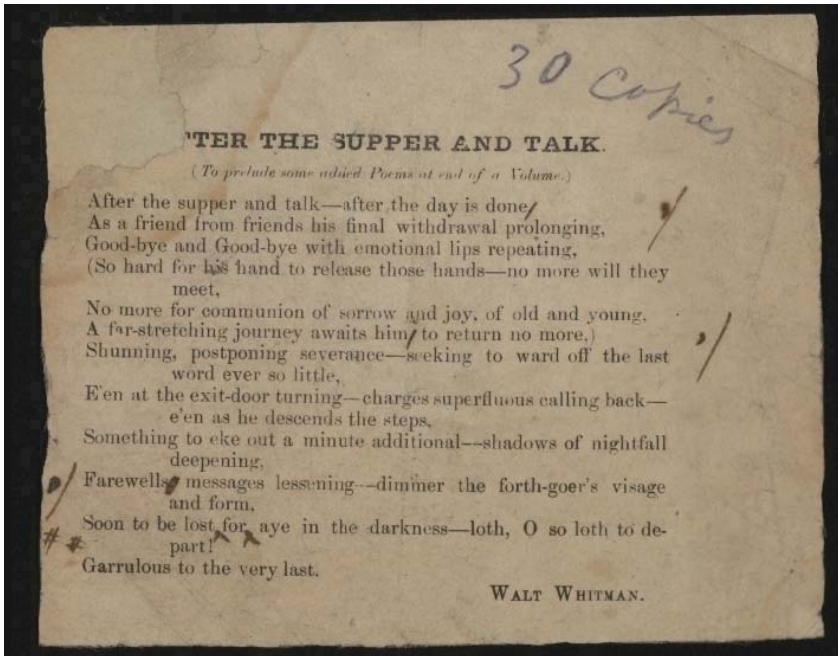 30 copies
TER THE SUPPER AND TALK.
(To prelude some added Poems at end of a Volume.)
After the supper and talk—after the day is done,
As a friend from friends his final withdrawal prolonging,
Good-bye and Good-bye with emotional lips repeating,
(So hard for his hand to release those hands—no more will they
meet,
No more for communion of sorrow and joy, of old and young,
A far-stretching journey awaits him, to return no more,)
Shunning, postponing severance—seeking to ward off the last
word ever so little,
E'en at the exit-door turning—charges superfluous calling back—
e'en as he descends the steps,
Something to eke out a minute additional—shadows of nightfall
deepening,
Farewells, messages lessening—dimmer the forth-goer's visage
and form,
Soon to be lost for aye in the darkness—loth, O so loth to de-
part!
Garrulous to the very last.
WALT WHITMAN.